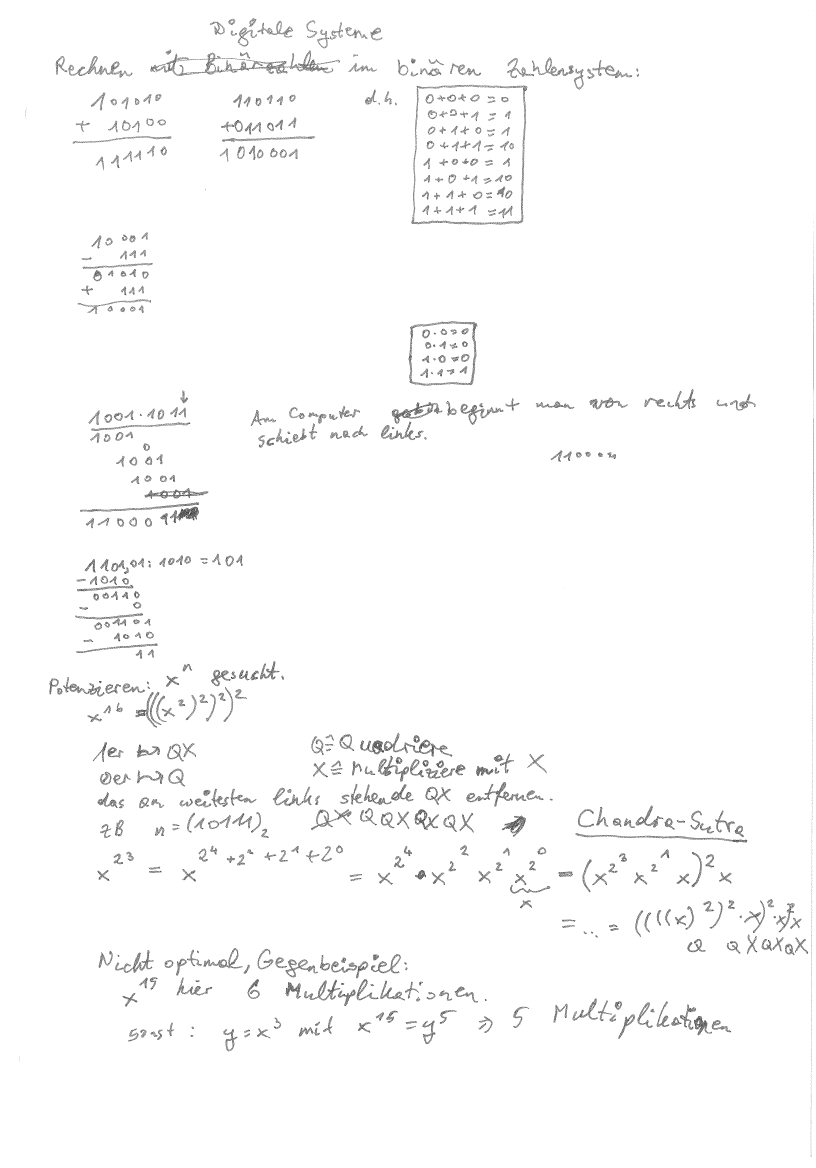 Digitale Systeme
Rechnen mit Binärzahlen im binären Zahlensystem:
101010
+ 10100
111110
110110
+011011
1010001
d.h.
0+0+0=0
0+0+1=1
0+1+0=1
0+1+1=10
1+0+0=1
1+0+1=10
1+1+0=10
1+1+1=11
10001
- 111
01010
+ 111
10001
0·0=0
0·1=0
1·0=0
1·1=1
1001·1011
1001
0
1001
1001
1001
1100011
Am Computer beginnt man von rechts und
schiebt nach links.
1101,01:1010=101
-1010
00110
- 0
001101
- 1010
11
Potenzieren: xⁿ gesucht.
x¹⁶ = (((x²)²)²)²
1er ↦ QX
0er ↦ Q
Q≙Quadriere
X≙Multipliziere mit X
das am weitesten links stehende QX entfernen.
zB n=(10111)₂ QX Q QX QX QX
Chandra-Sutra
x²³ = x^(2⁴+2²+2¹+2⁰) = x^(2⁴) · x^(2²) x^(2¹) x^(2⁰) = (x^(2³) x^(2¹) x)² x
x
= ... = ((((x)²)²·x)²·x)²x
Q QXQXQX
Nicht optimal, Gegenbeispiel:
x¹⁵ hier 6 Multiplikationen.
sonst: y=x³ mit x¹⁵=y⁵ ⇒ 5 Multiplikationen